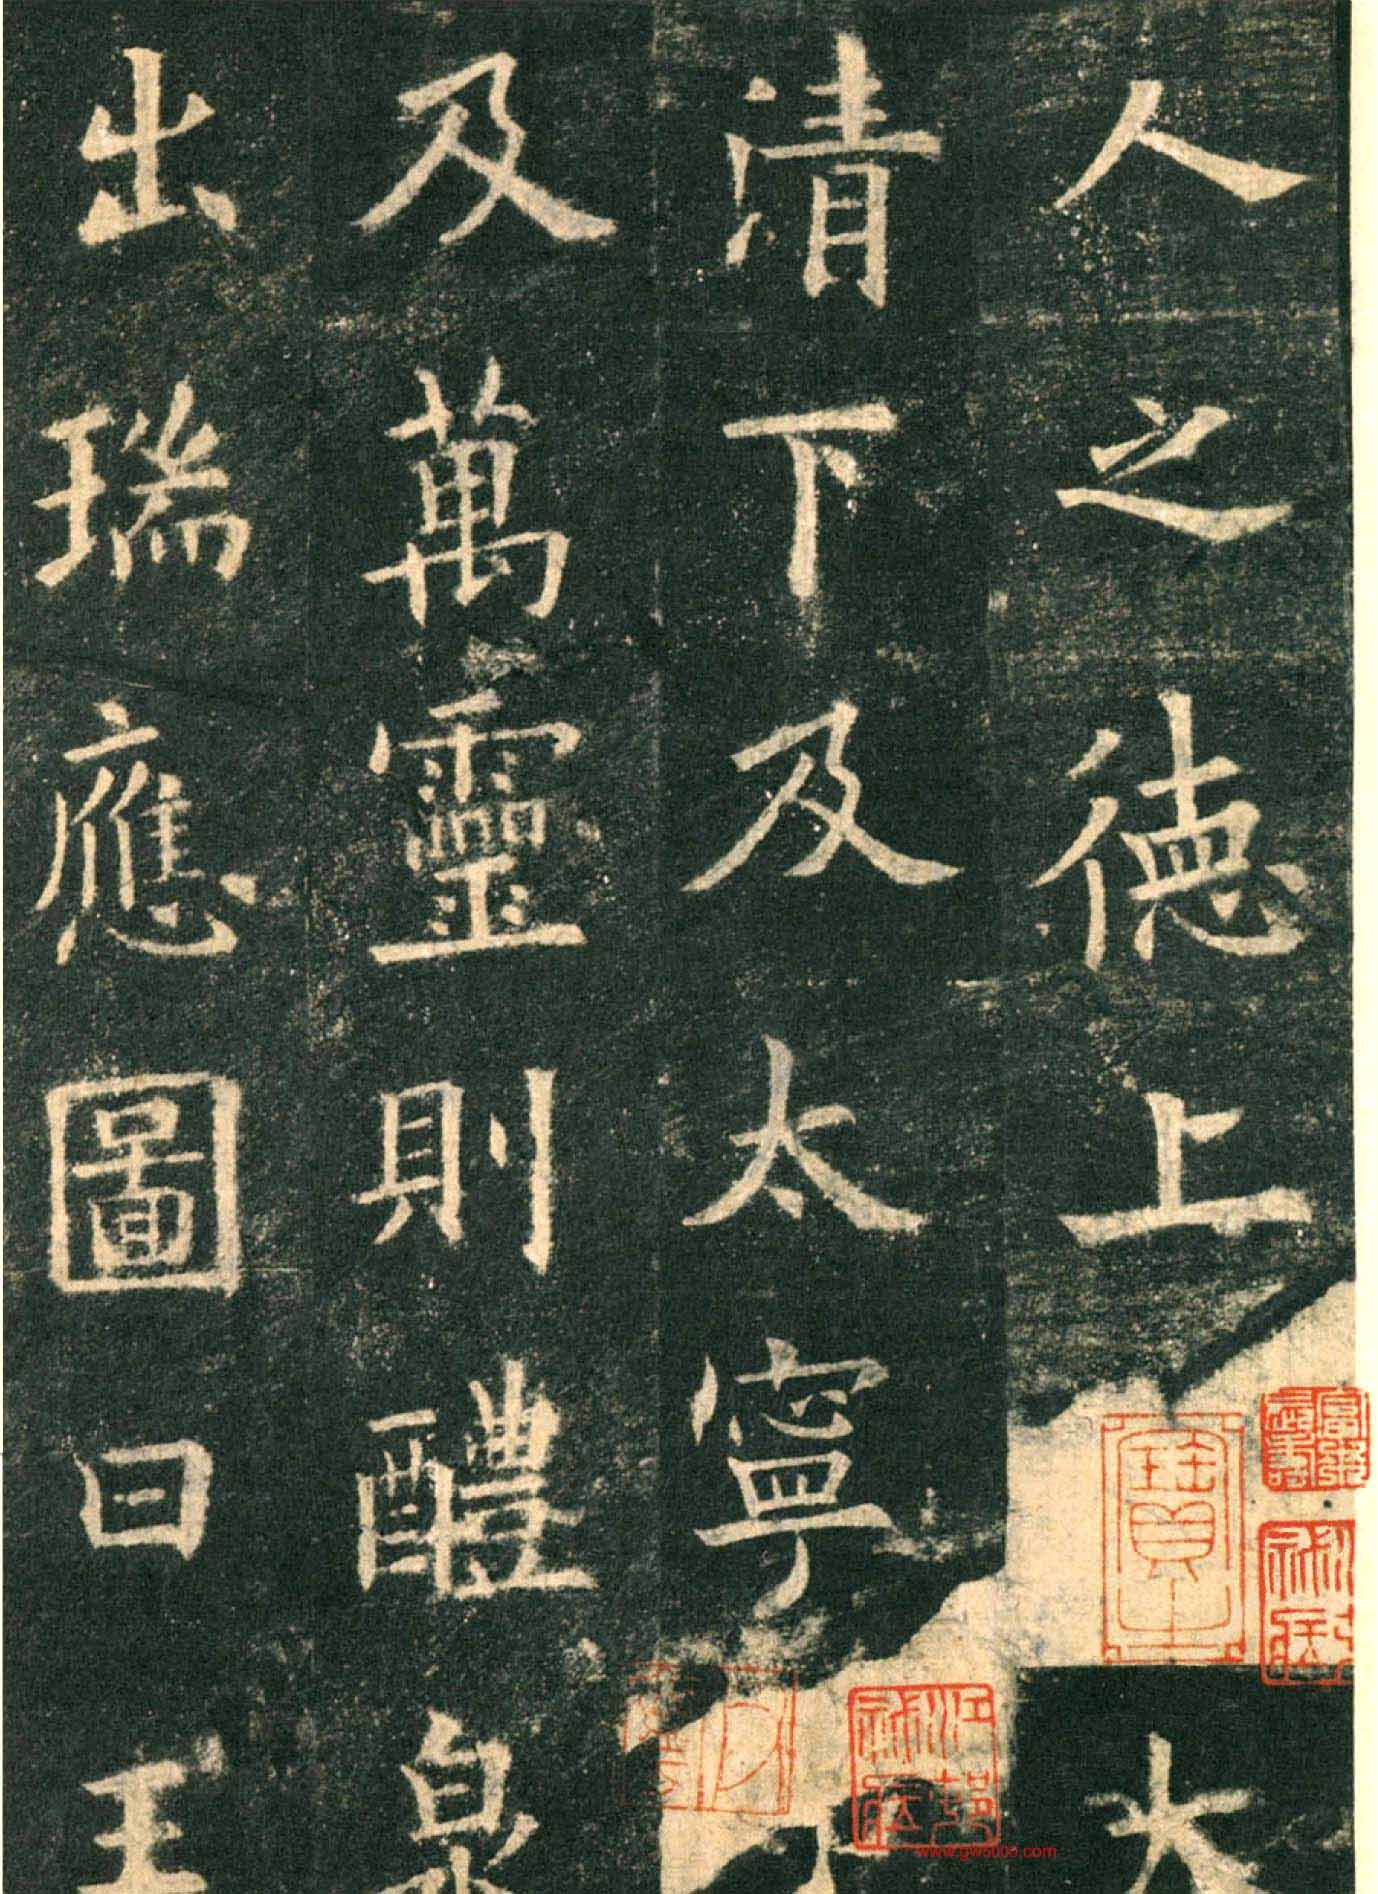 人之德上
清下及太寧
及萬靈則醴泉
出瑞應圖曰王
www.gw5000.com